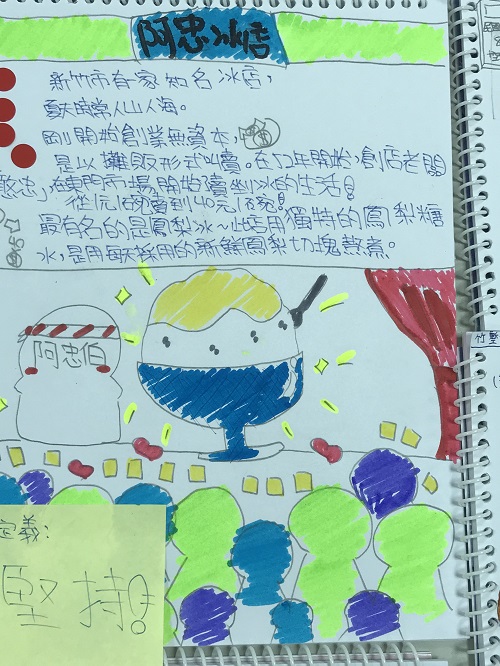 阿忠冰店
新竹市有家知名冰店,
夏天時常人山人海。
剛開始創業無資本,
是以攤販形式叫賣。在52年開始,創店老闆
憨忠,東門市場,開始賣剉冰的生活!
從1元1碗賣到40元1碗!
最有名的是鳳梨冰~此店用獨特的鳳梨糖
水,是用每天採用的新鮮鳳梨切塊熬煮。
阿忠伯
定義:
堅持!
竹塹